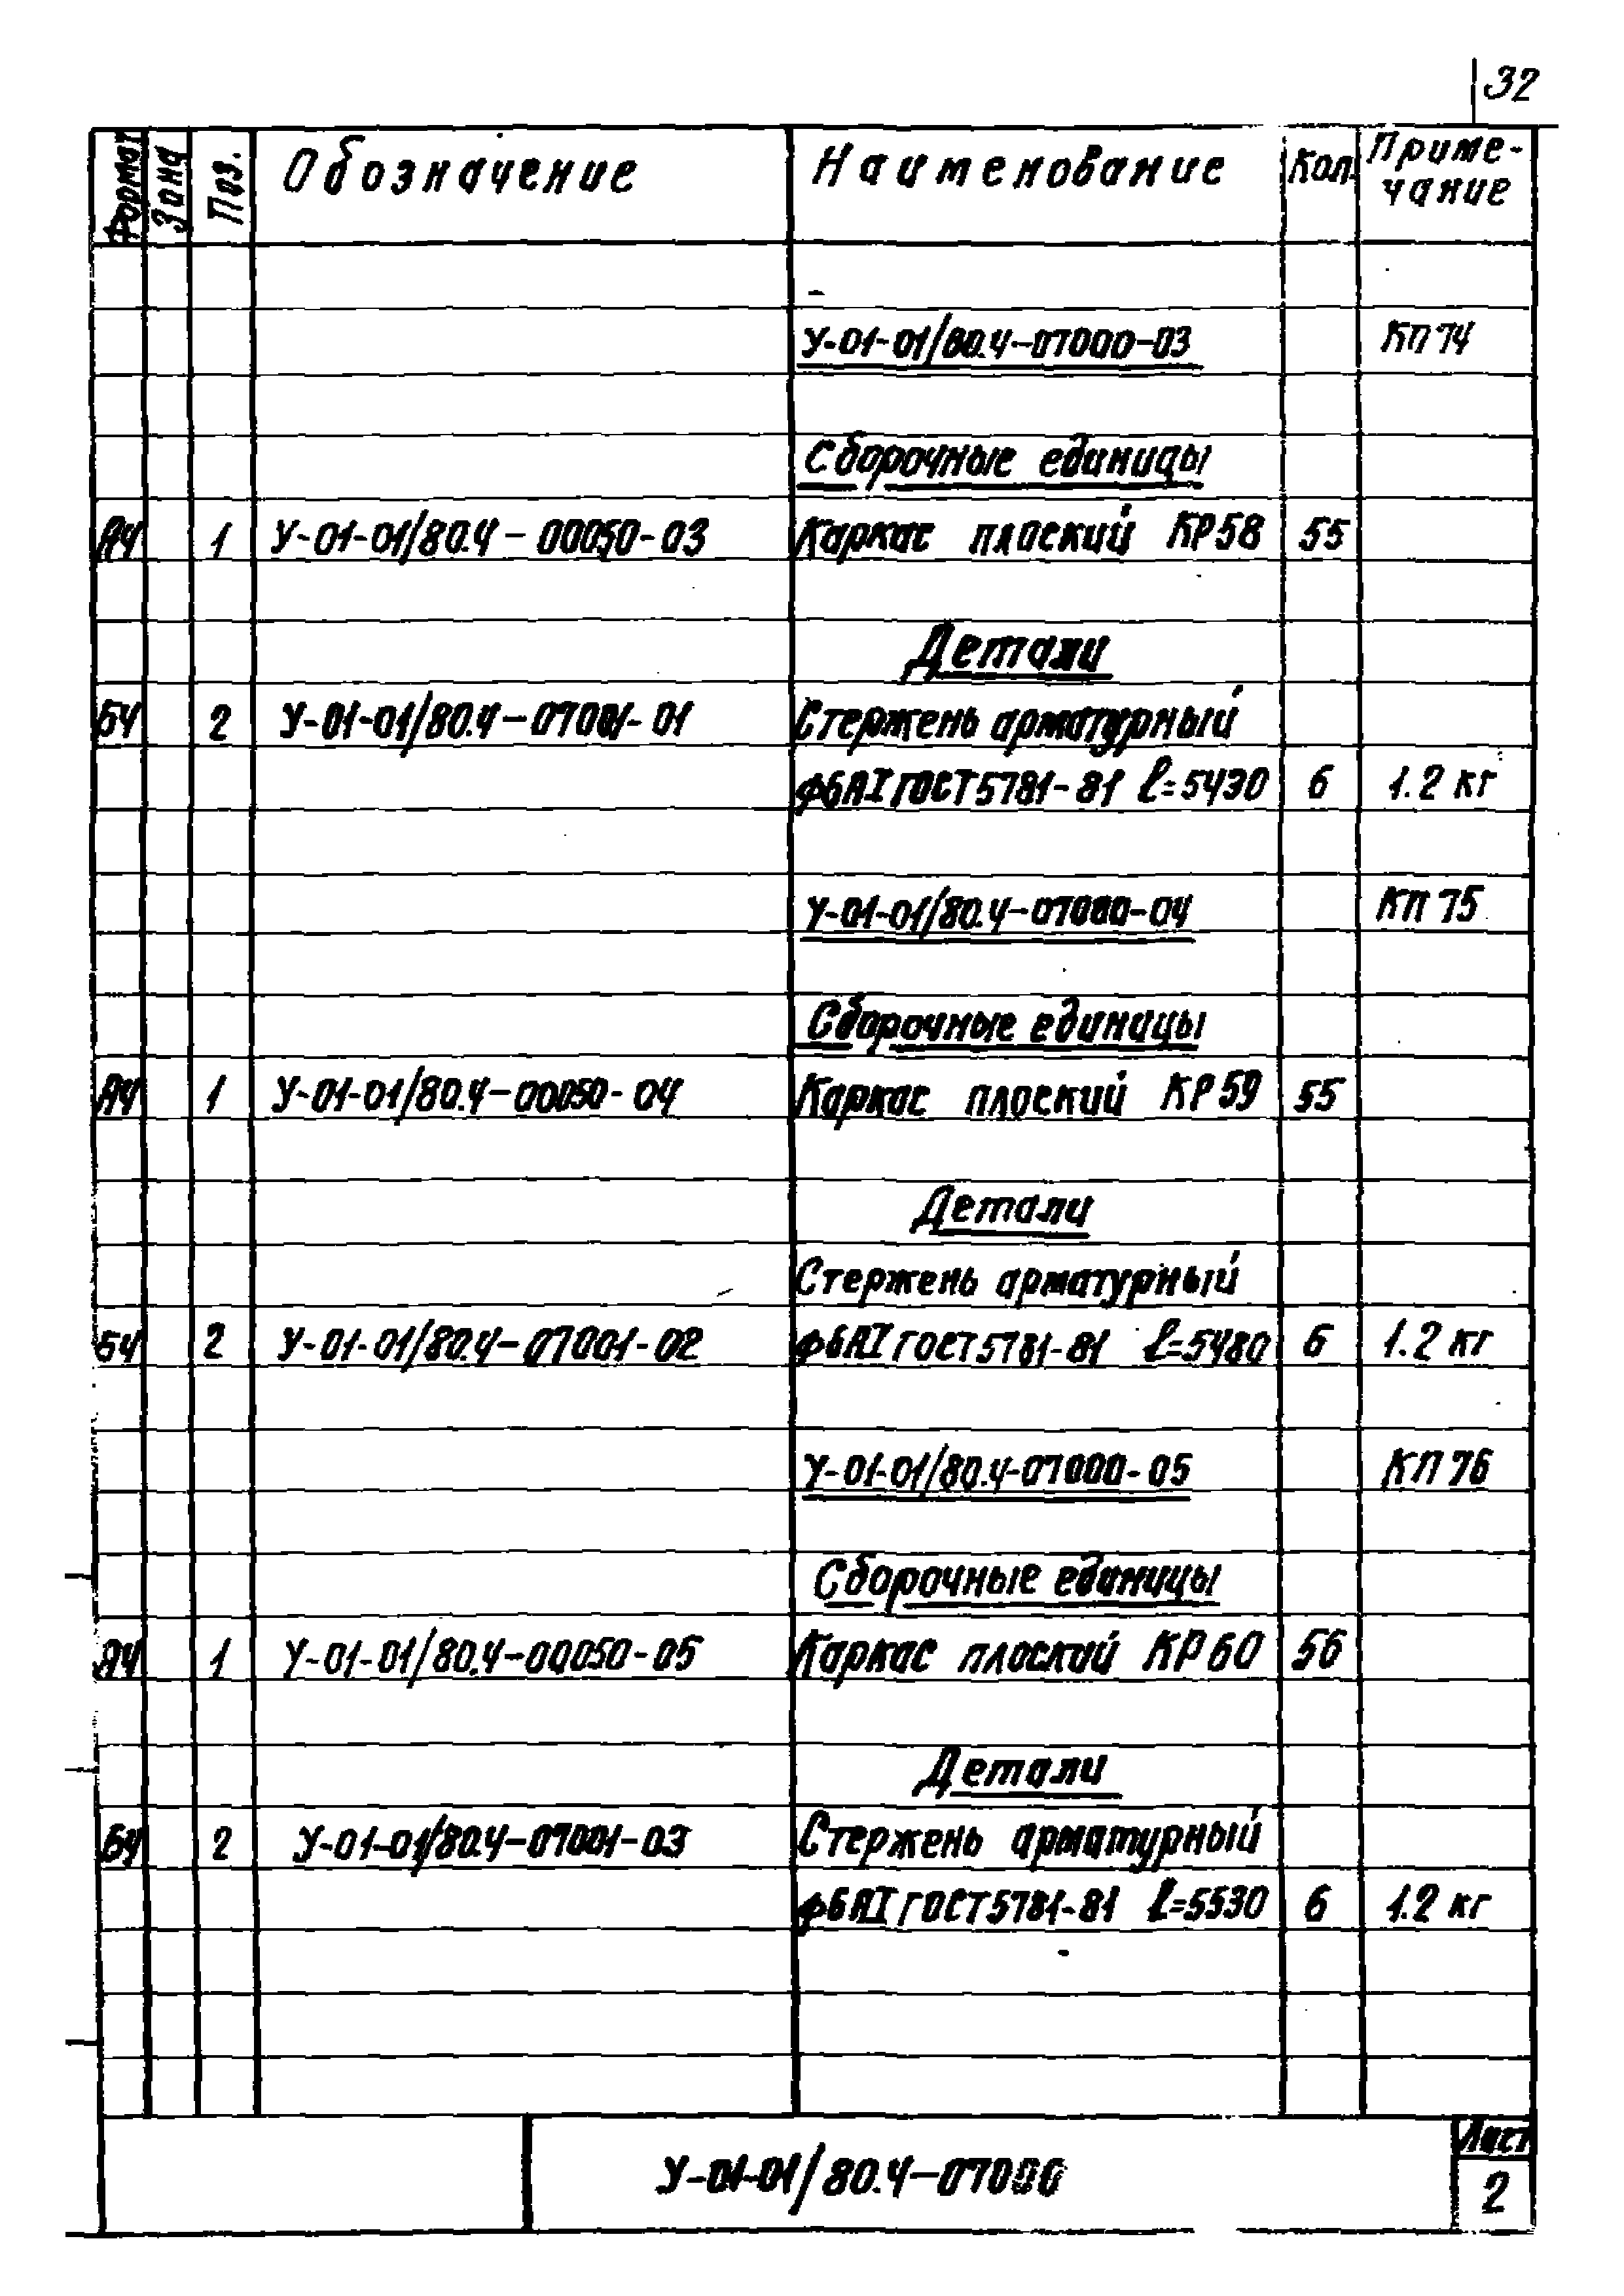 32
Формат Зона Поз. Обозначение Наименование Кол. Приме-
чание
У-01-01/80.4-07000-03 КП 74
Сборочные единицы
А4 1 У-01-01/80.4-00050-03 Каркас плоский КР58 55
Детали
БЧ 2 У-01-01/80.4-07001-01 Стержень арматурный
ф6АI ГОСТ 5781-81 ℓ=5430 6 1.2 кг
У-01-01/80.4-07000-04 КП 75
Сборочные единицы
А4 1 У-01-01/80.4-00050-04 Каркас плоский КР59 55
Детали
Стержень арматурный
БЧ 2 У-01-01/80.4-07001-02 ф6АI ГОСТ 5781-81 ℓ=5480 6 1.2 кг
У-01-01/80.4-07000-05 КП 76
Сборочные единицы
А4 1 У-01-01/80.4-00050-05 Каркас плоский КР60 56
Детали
БЧ 2 У-01-01/80.4-07001-03 Стержень арматурный
ф6АI ГОСТ 5781-81 ℓ=5530 6 1.2 кг
У-01-01/80.4-07000
Лист
2